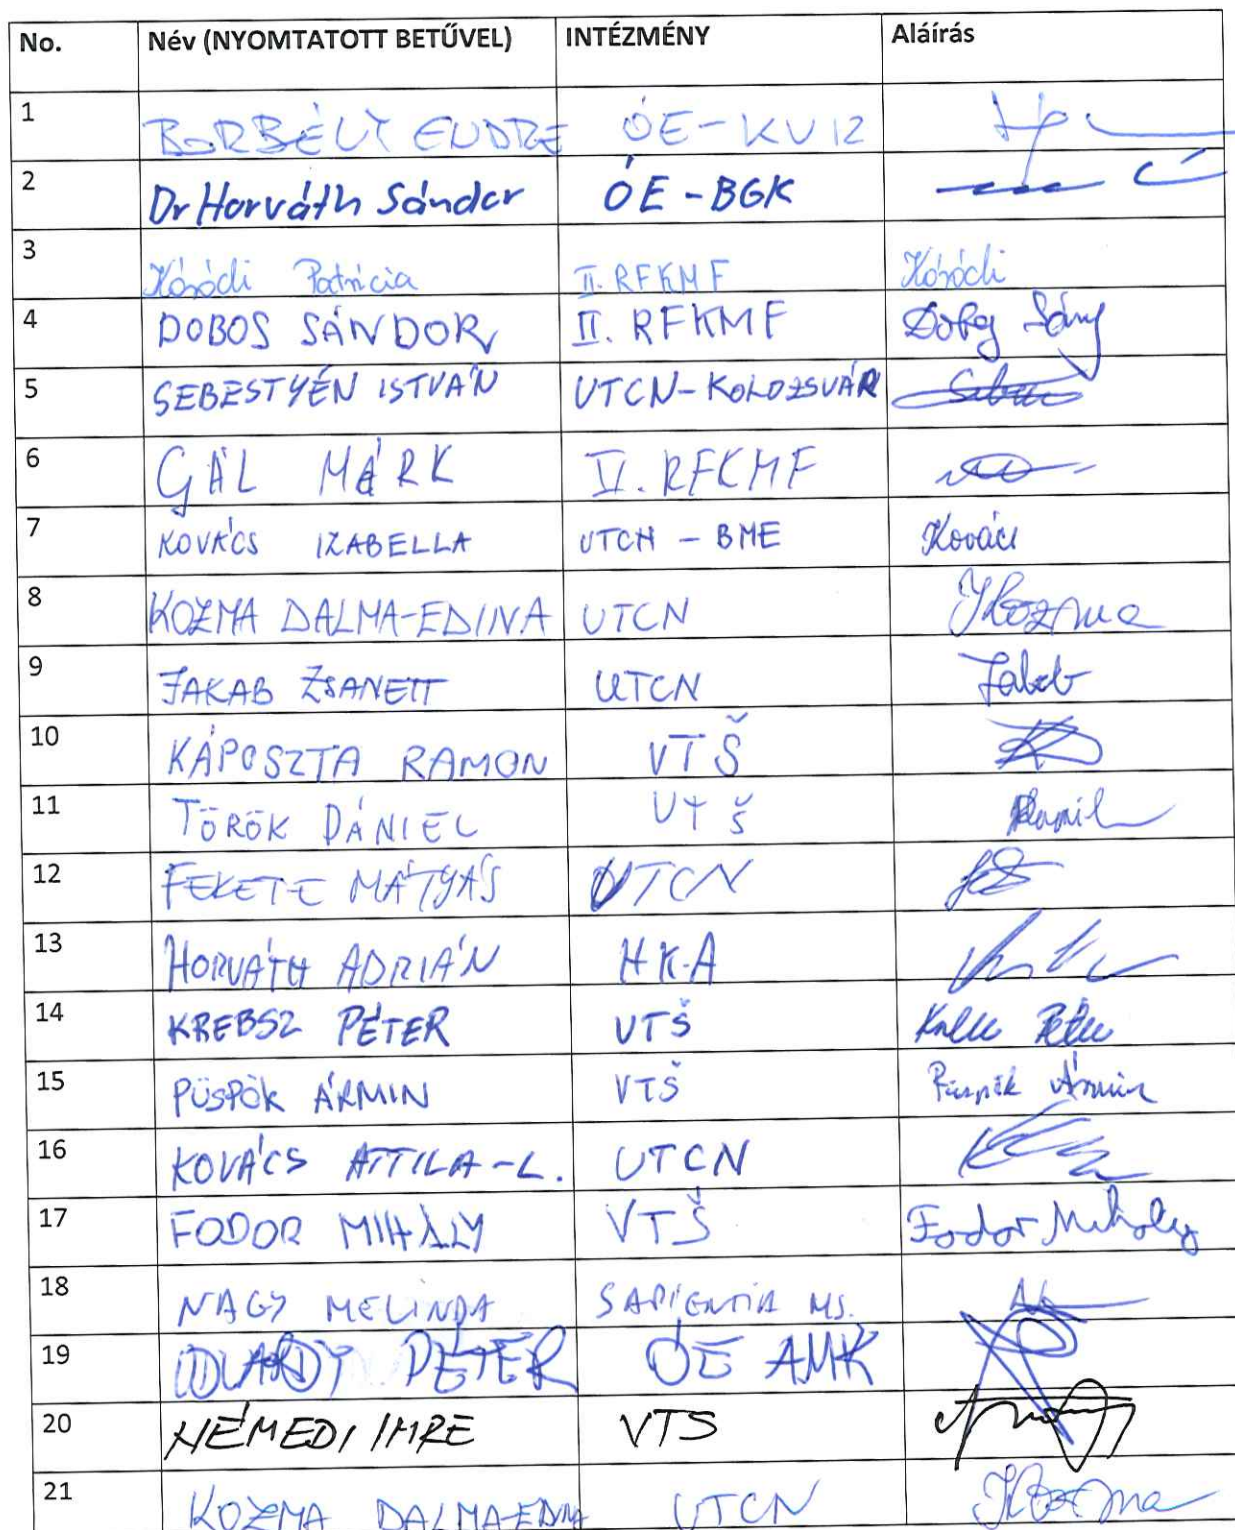 No. Név (NYOMTATOTT BETŰVEL) INTÉZMÉNY Aláírás
1 BORBÉLY ENDRE ÓE-KVIZ
2 Dr Horváth Sándor ÓE-BGK
3 Kósódi Patrícia II. RFKMF Kósódi
4 DOBOS SÁNDOR II. RFKMF
5 SEBESTYÉN ISTVÁN UTCN-KOLOZSVÁR
6 GÁL MÁRK II. RFKMF
7 KOVÁCS IZABELLA UTCN - BME Kovács
8 KOZMA DALMA-EDINA UTCN Kozma
9 JAKAB ZSANETT UTCN Jakab
10 KÁPOSZTA RAMON VTŠ
11 TÖRÖK DÁNIEL VTŠ
12 FEKETE MÁTYÁS UTCN
13 HORVÁTH ADRIÁN HK-A
14 KREBSZ PÉTER VTŠ
15 PÜSPÖK ÁRMIN VTŠ Püspök Ármin
16 KOVÁCS ATTILA-L. UTCN
17 FODOR MIHÁLY VTŠ Fodor Mihály
18 NAGY MELINDA SAPIENTIA MS.
19 UDVARDY PÉTER ÓE AMK
20 NÉMEDI IMRE VTS
21 KOZMA DALMA-EDINA UTCN Kozma